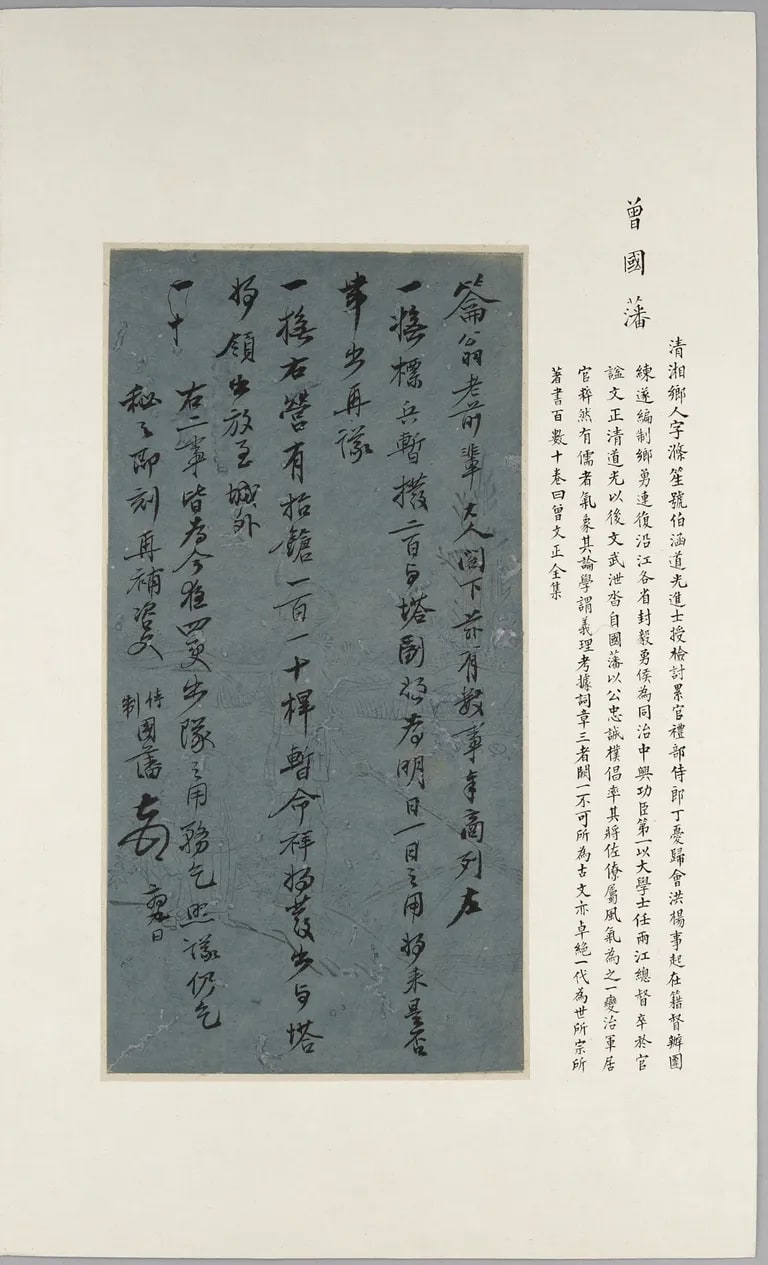 曾國藩
清湘鄉人字滌笙號伯涵道光進士授檢討累官禮部侍郎丁憂歸會洪楊事起在籍督辦團
練遂編制鄉勇連復沿江各省封毅勇侯為同治中興功臣第一以大學士任兩江總督卒於官
諡文正清道光以後文武泄沓自國藩以公忠誠樸倡率其將佐僚屬風氣為之一變治軍居
官粹然有儒者氣象其論學謂義理考據詞章三者闕一不可所為古文亦卓絕一代為世所宗所
著書百數十卷曰曾文正全集
翁老前輩大人閣下茲有數事奉商列左
一撫標兵暫撥二百与塔副將為明日一日之用將來是否
帶出再議
一撫右營有抬鎗一百一十桿暫命祥將發出与塔
將領出放至城外
一十
右二事皆為今夜四更出隊之用務乞照議仍乞
秘之即刻再補咨文 侍制國藩 日